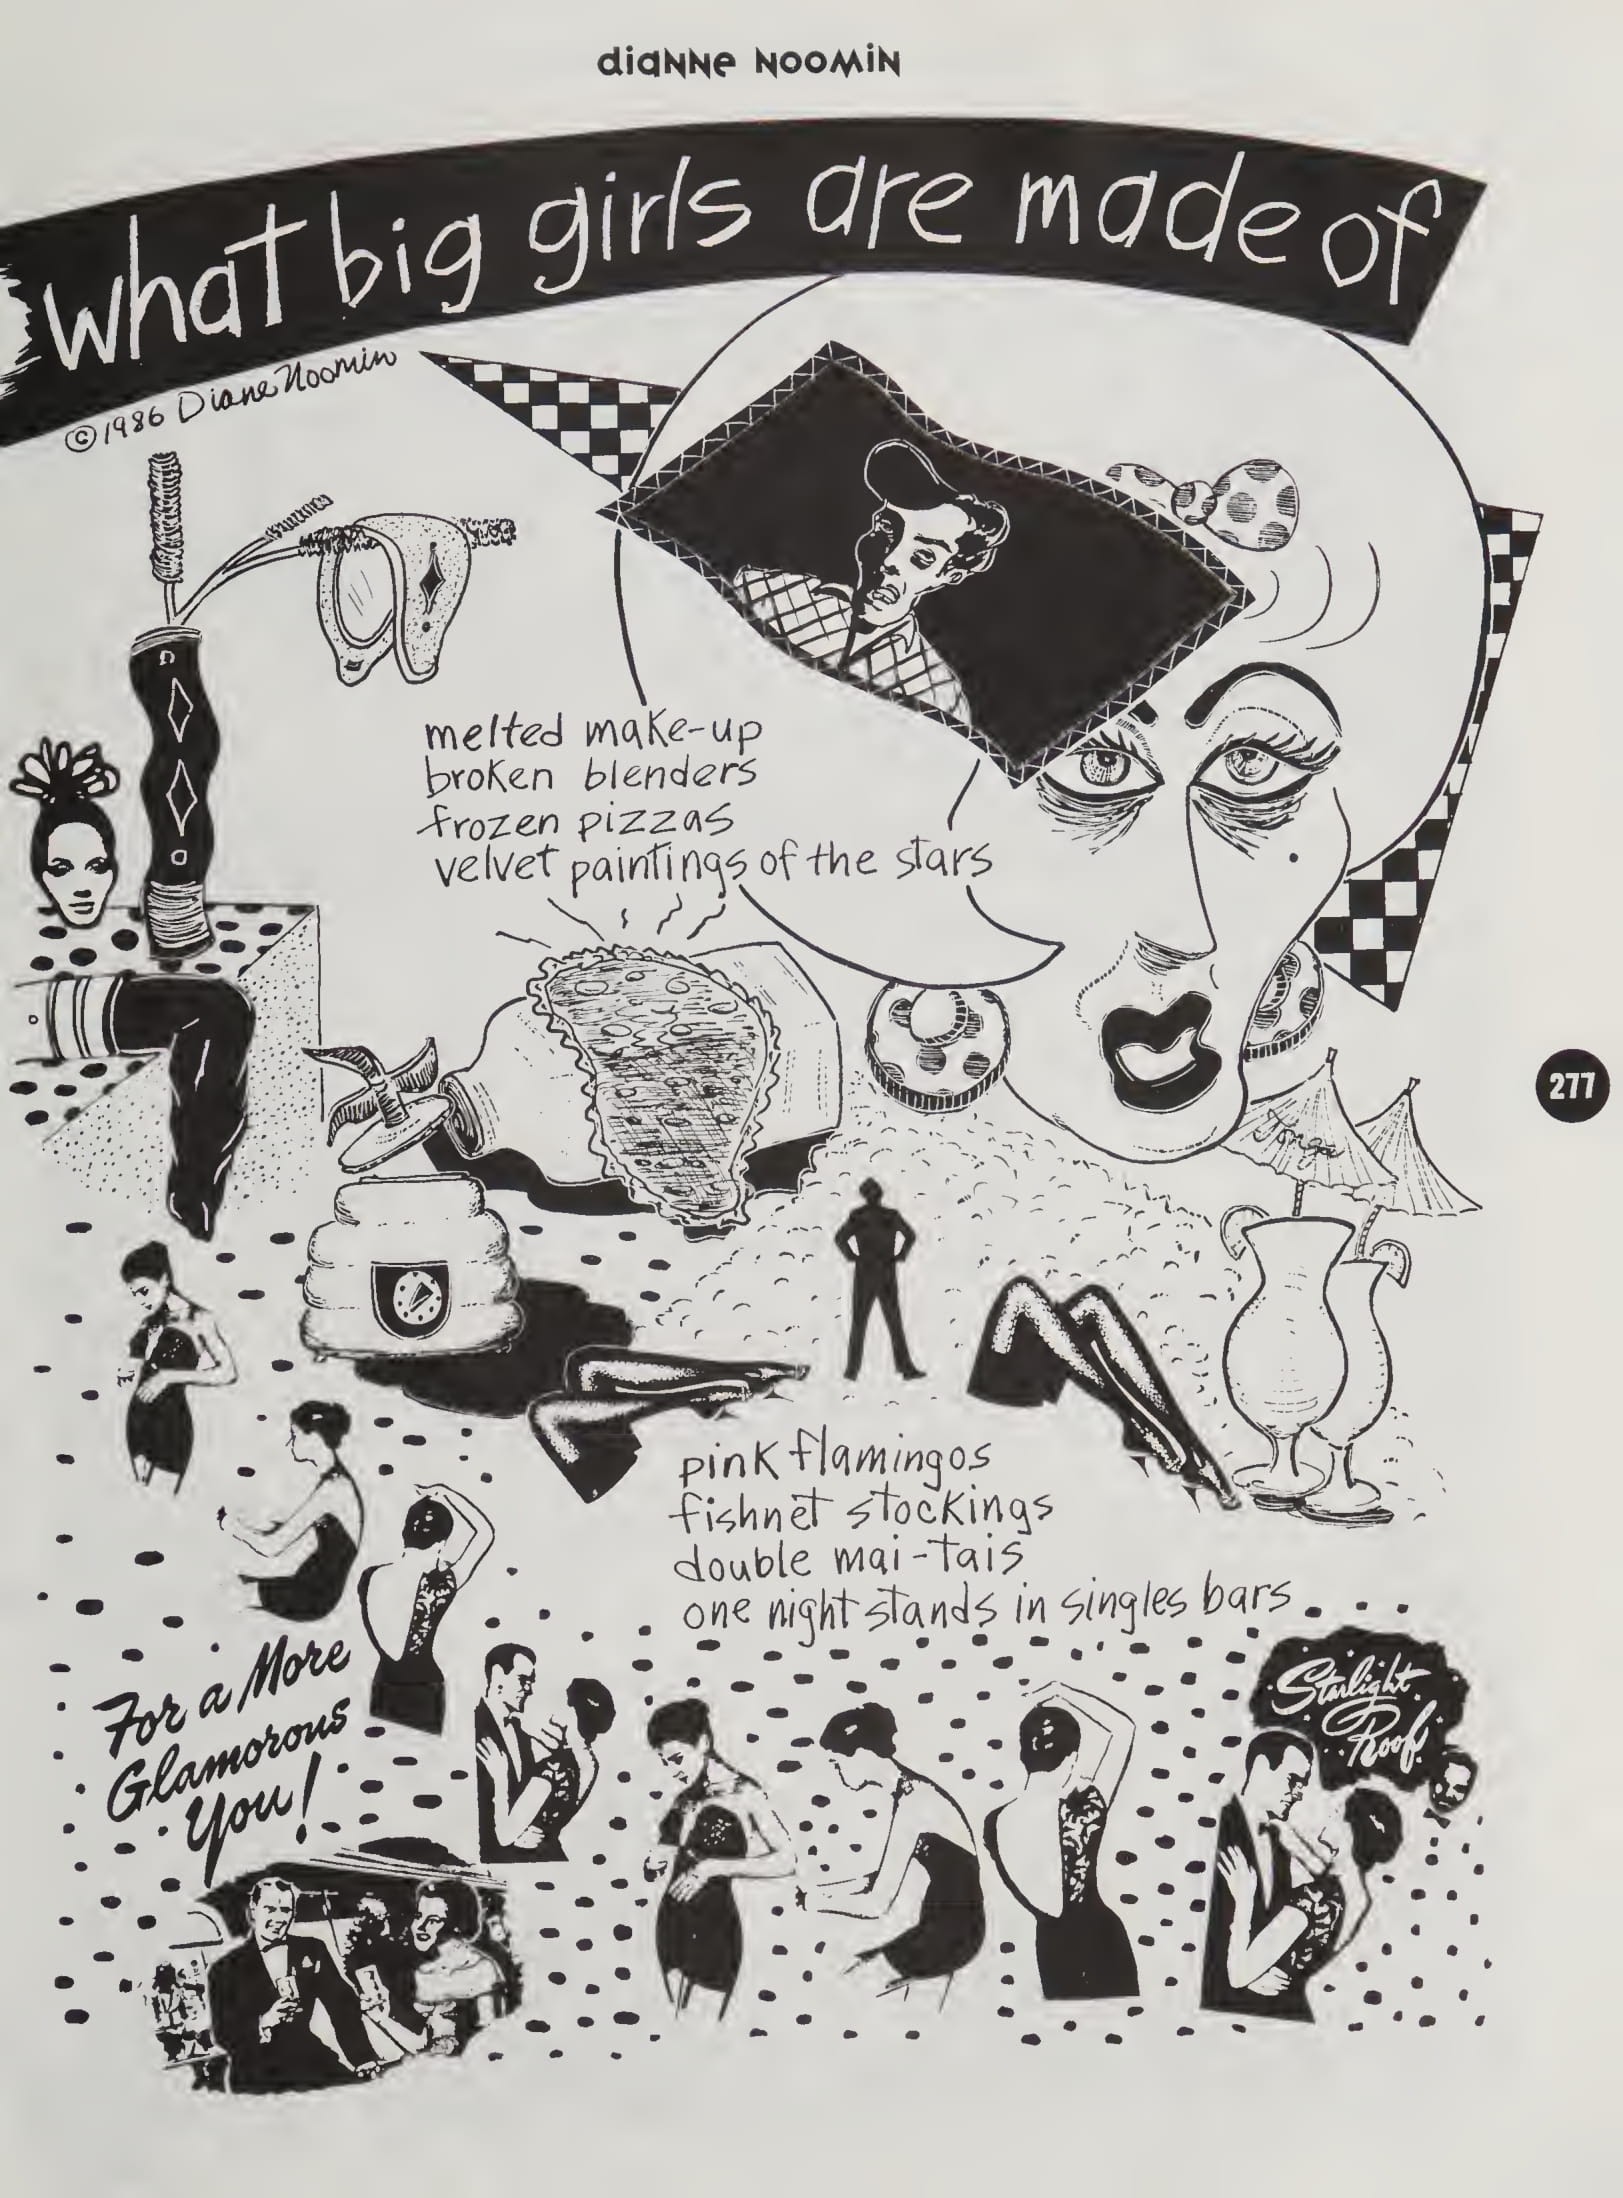 diANNe NOOMiN
what big girls are made of
©1986 Diane Noomin
melted make-up
broken blenders
frozen pizzas
velvet paintings of the stars
277
Tonga
pink flamingos
fishnet stockings
double mai-tais
one night stands in singles bars
For a More
Glamorous
You!
Starlight
Roof